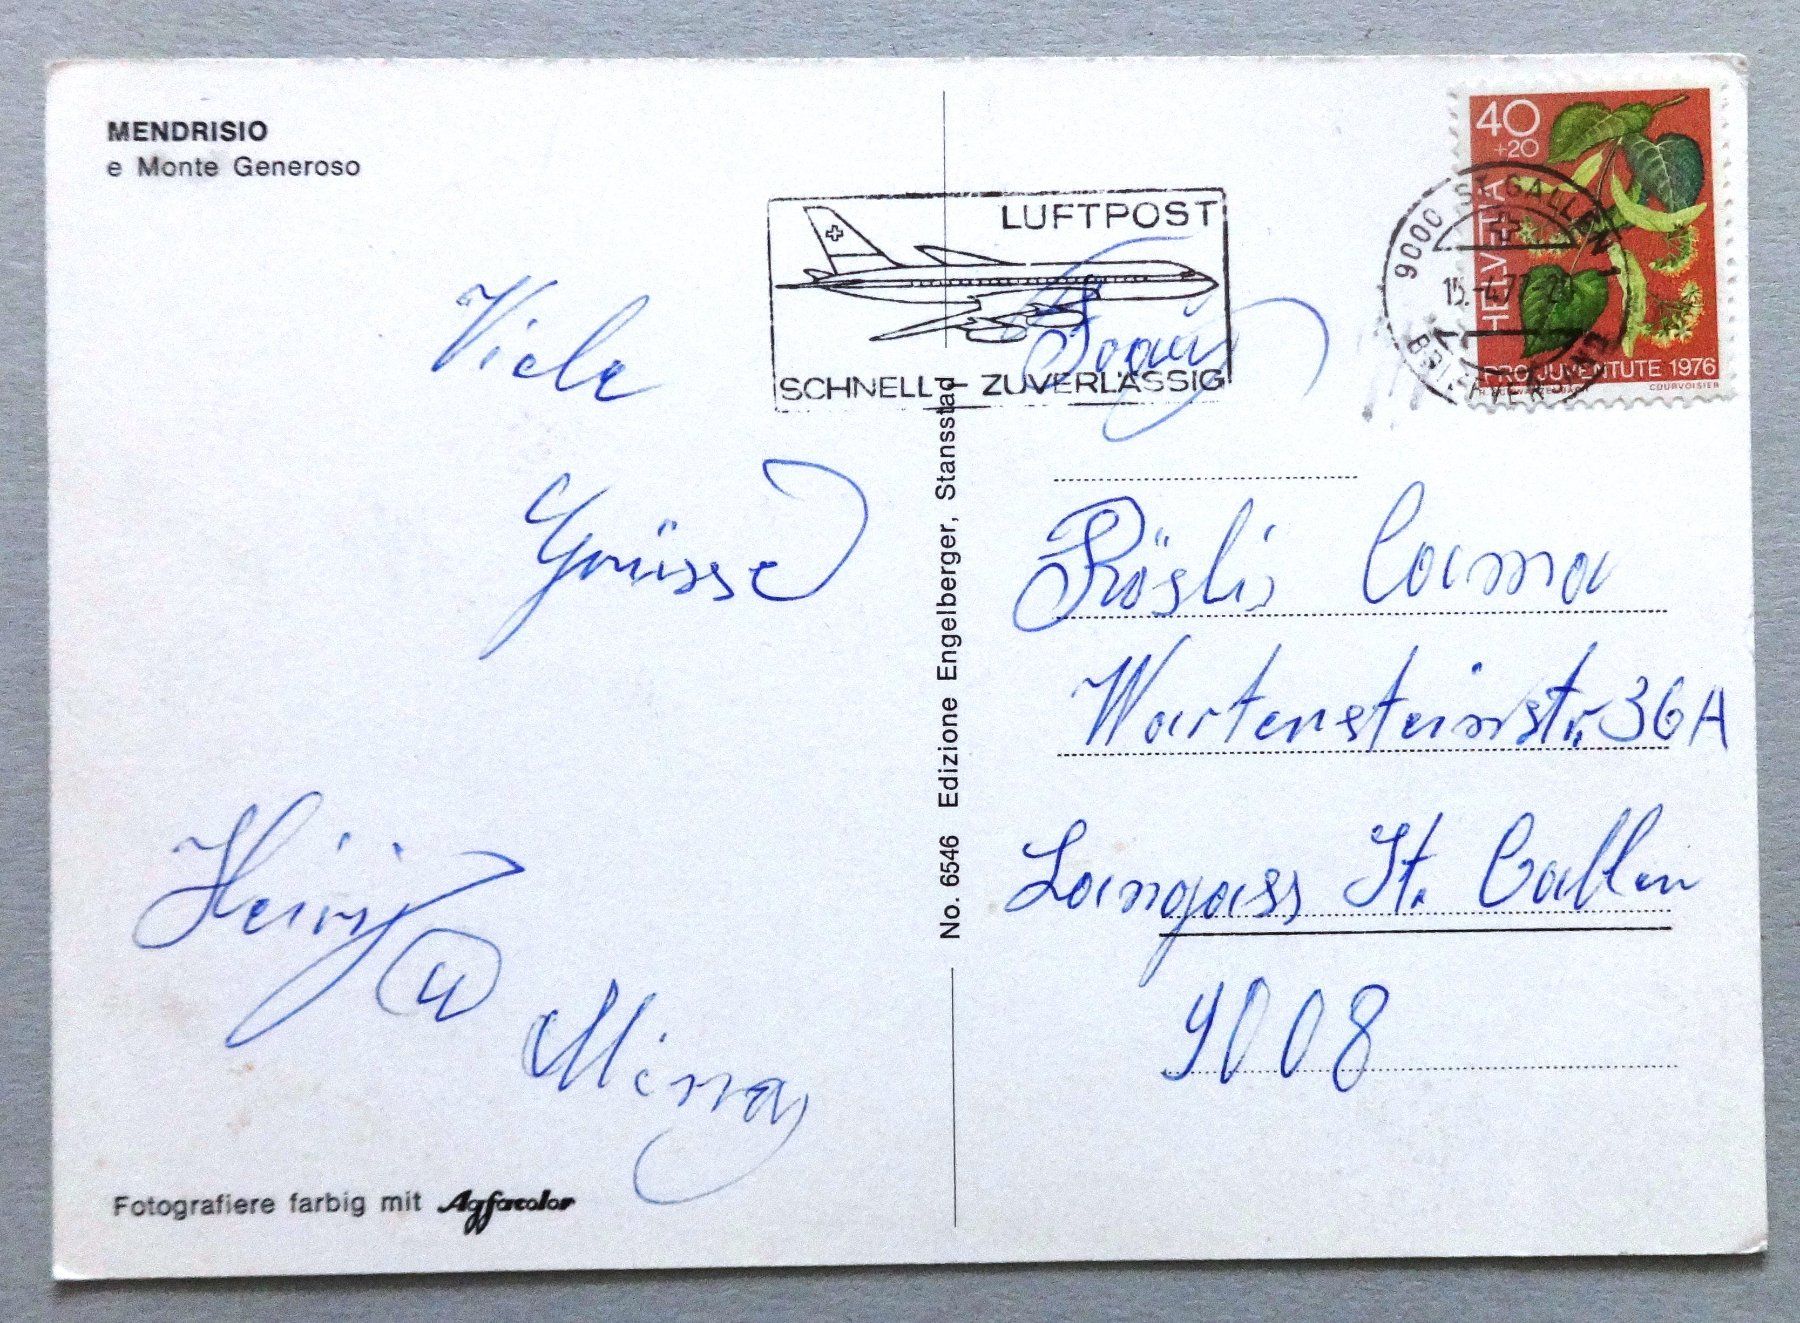 MENDRISIO
e Monte Generoso
Viele
Grüsse
u
Mina
Fotografiere farbig mit Agfacolor
No. 6546 Edizione Engelberger, Stansstad
LUFTPOST
SCHNELL - ZUVERLÄSSIG
9000 ST. GALLEN 1
15.-4.77-20
BRIEFVERSAND
40
+20
HELVETIA
PRO JUVENTUTE 1976
COURVOISIER
Frau
Rösli Cama
Wartensteinstr. 36A
Langgass St. Gallen
9008